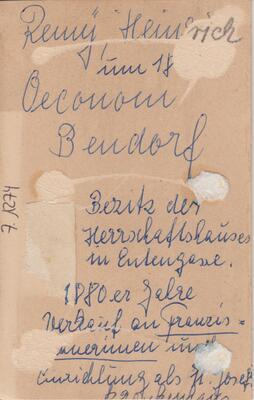 Remÿ Heinrich
um 18
Oeconom
Bendorf
Bezitz des
Herrschaftshauses
in Entengasse.
1880er Jahre
Verkauf an Franzis=
anerinnen und
Einrichtung als St. Josef
7. 1274